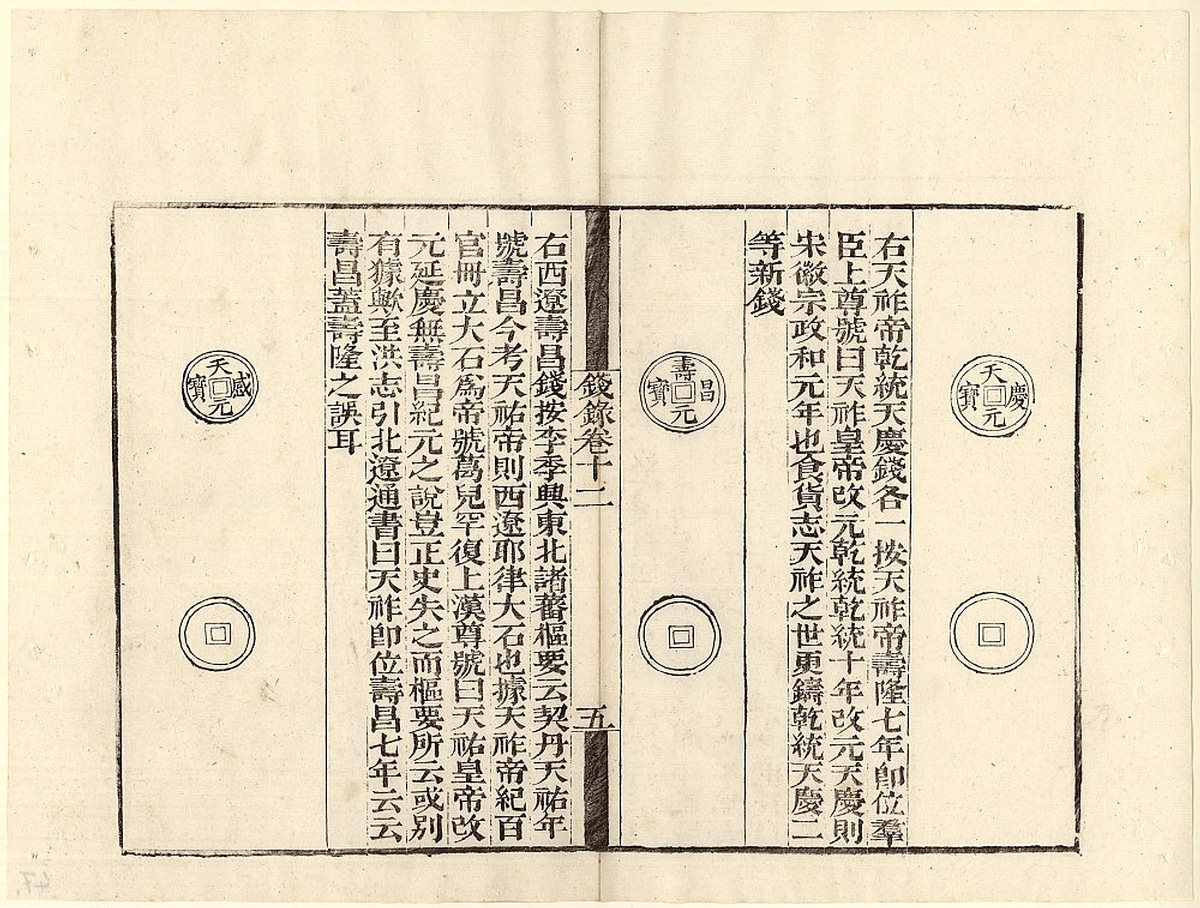 天慶元寶
右天祚帝乾統天慶錢各一按天祚帝壽隆七年卽位羣
臣上尊號曰天祚皇帝改元乾統乾統十年改元天慶則
宋徽宗政和元年也食貨志天祚之世更鑄乾統天慶二
等新錢
壽昌元寶
錢錄卷十二
五
右西遼壽昌錢按李季興東北諸蕃樞要云契丹天祐年
號壽昌今考天祐帝則西遼耶律大石也據天祚帝紀百
官冊立大石爲帝號葛兒罕復上漢尊號曰天祐皇帝改
元延慶無壽昌紀元之說豈正史失之而樞要所云或別
有據歟至洪志引北遼通書曰天祚卽位壽昌七年云云
壽昌蓋壽隆之誤耳
天感元寶
47.